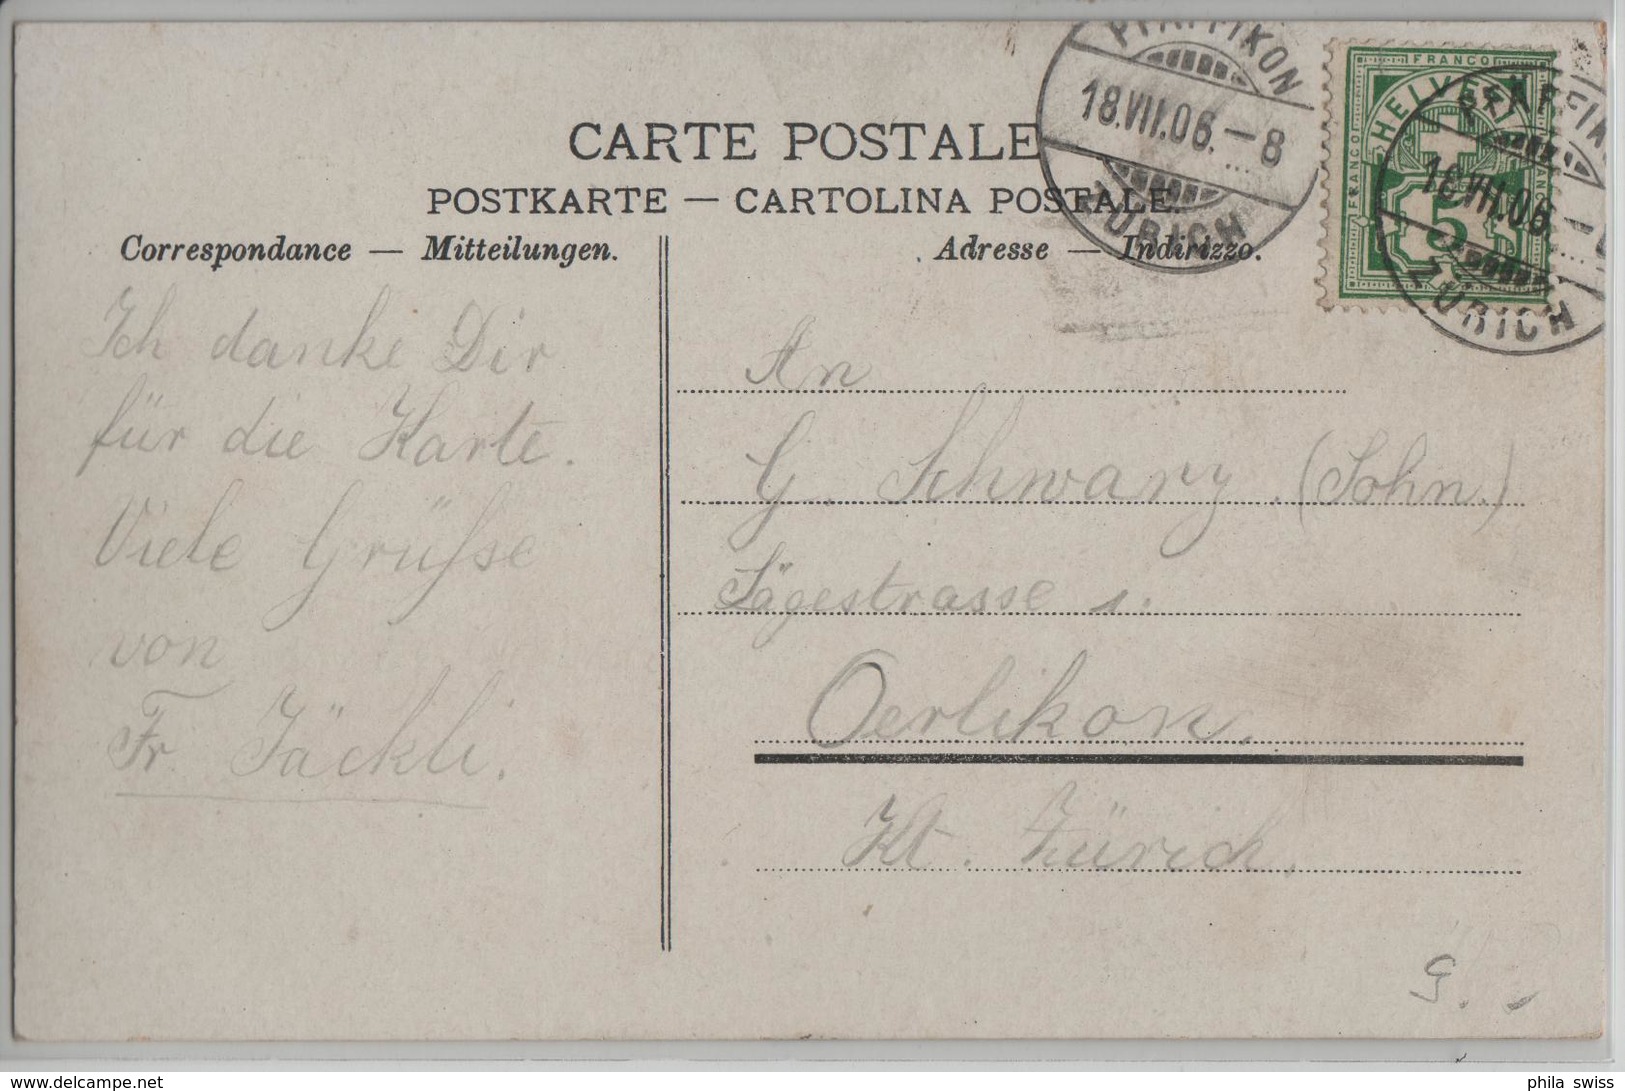 CARTE POSTALE
POSTKARTE — CARTOLINA POSTALE.
Correspondance — Mitteilungen.
Adresse — Indirizzo.
PFÄFFIKON
18.VII.06.–8
ZÜRICH
FRANCO
HELVETIA
FRANCO
5
18.VII.06.
ZÜRICH
Ich danke Dir
für die Karte.
Viele Grüsse
von
Fr. Jäckli.
An
G. Schwarz. (Sohn.)
Sägestrasse 1.
Oerlikon.
Kt. Zürich.
www.delcampe.net
phila_swiss